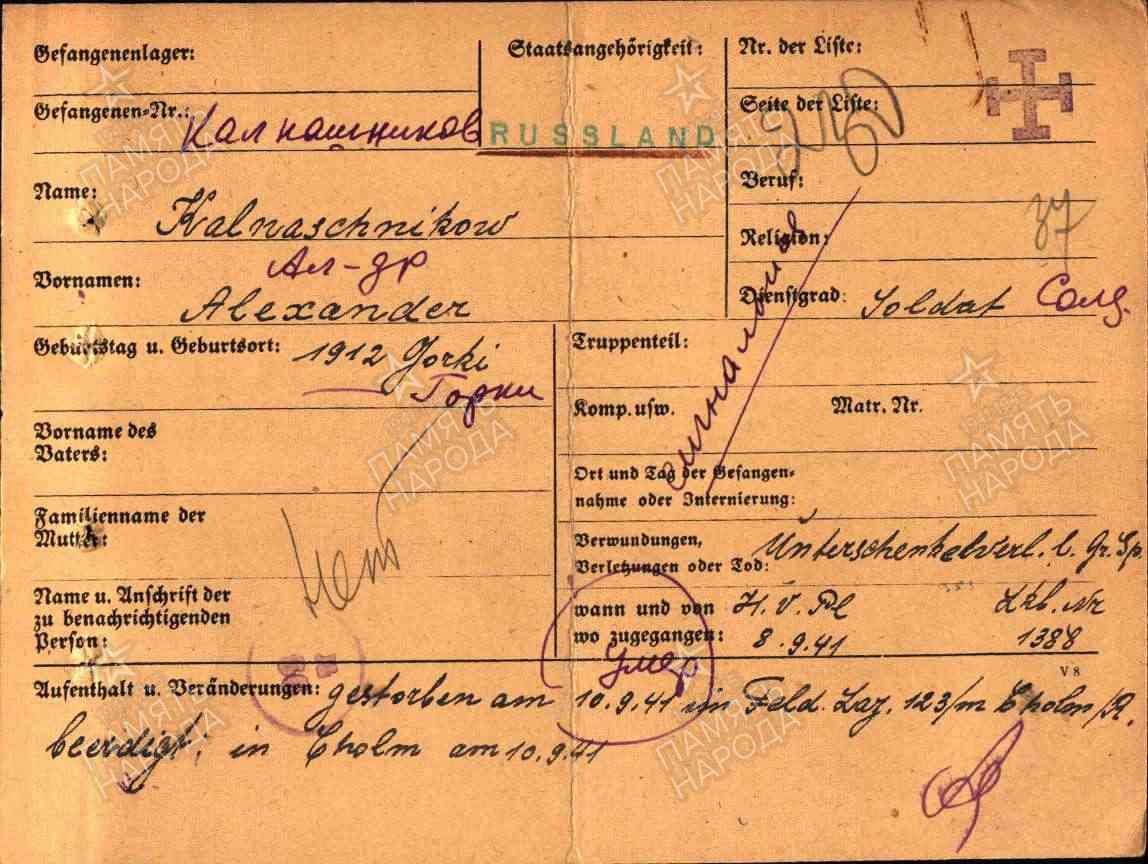 Gefangenenlager:
Staatsangehörigkeit:
Nr. der Liste:
Gefangenen-Nr.: Калнашников
RUSSLAND
Seite der Liste:
Beruf:
Name: Kalnaschnikow
Religion:
37
Ал-др
Vornamen: Alexander
Dienstgrad: Soldat Солд.
Geburtstag u. Geburtsort: 1912 Gorki
Горки
Truppenteil:
Komp. usw.
Matr. Nr.
Vorname des
Vaters:
Ort und Tag der Gefangen-
nahme oder Internierung:
Familienname der
Mutter:
Verwundungen,
Verletzungen oder Tod: Unterschenkelverl. l. Gr. Sp.
Name u. Anschrift der
zu benachrichtigenden
Person:
wann und von H.V.Pl Lkb. Nr
wo zugegangen: 8.9.41 1388
Умер
V 8
Aufenthalt u. Veränderungen: gestorben am 10.9.41 im Feld. Laz. 123/m Cholm/R.
beerdigt: in Cholm am 10.9.41
ПАМЯТЬ
НАРОДА